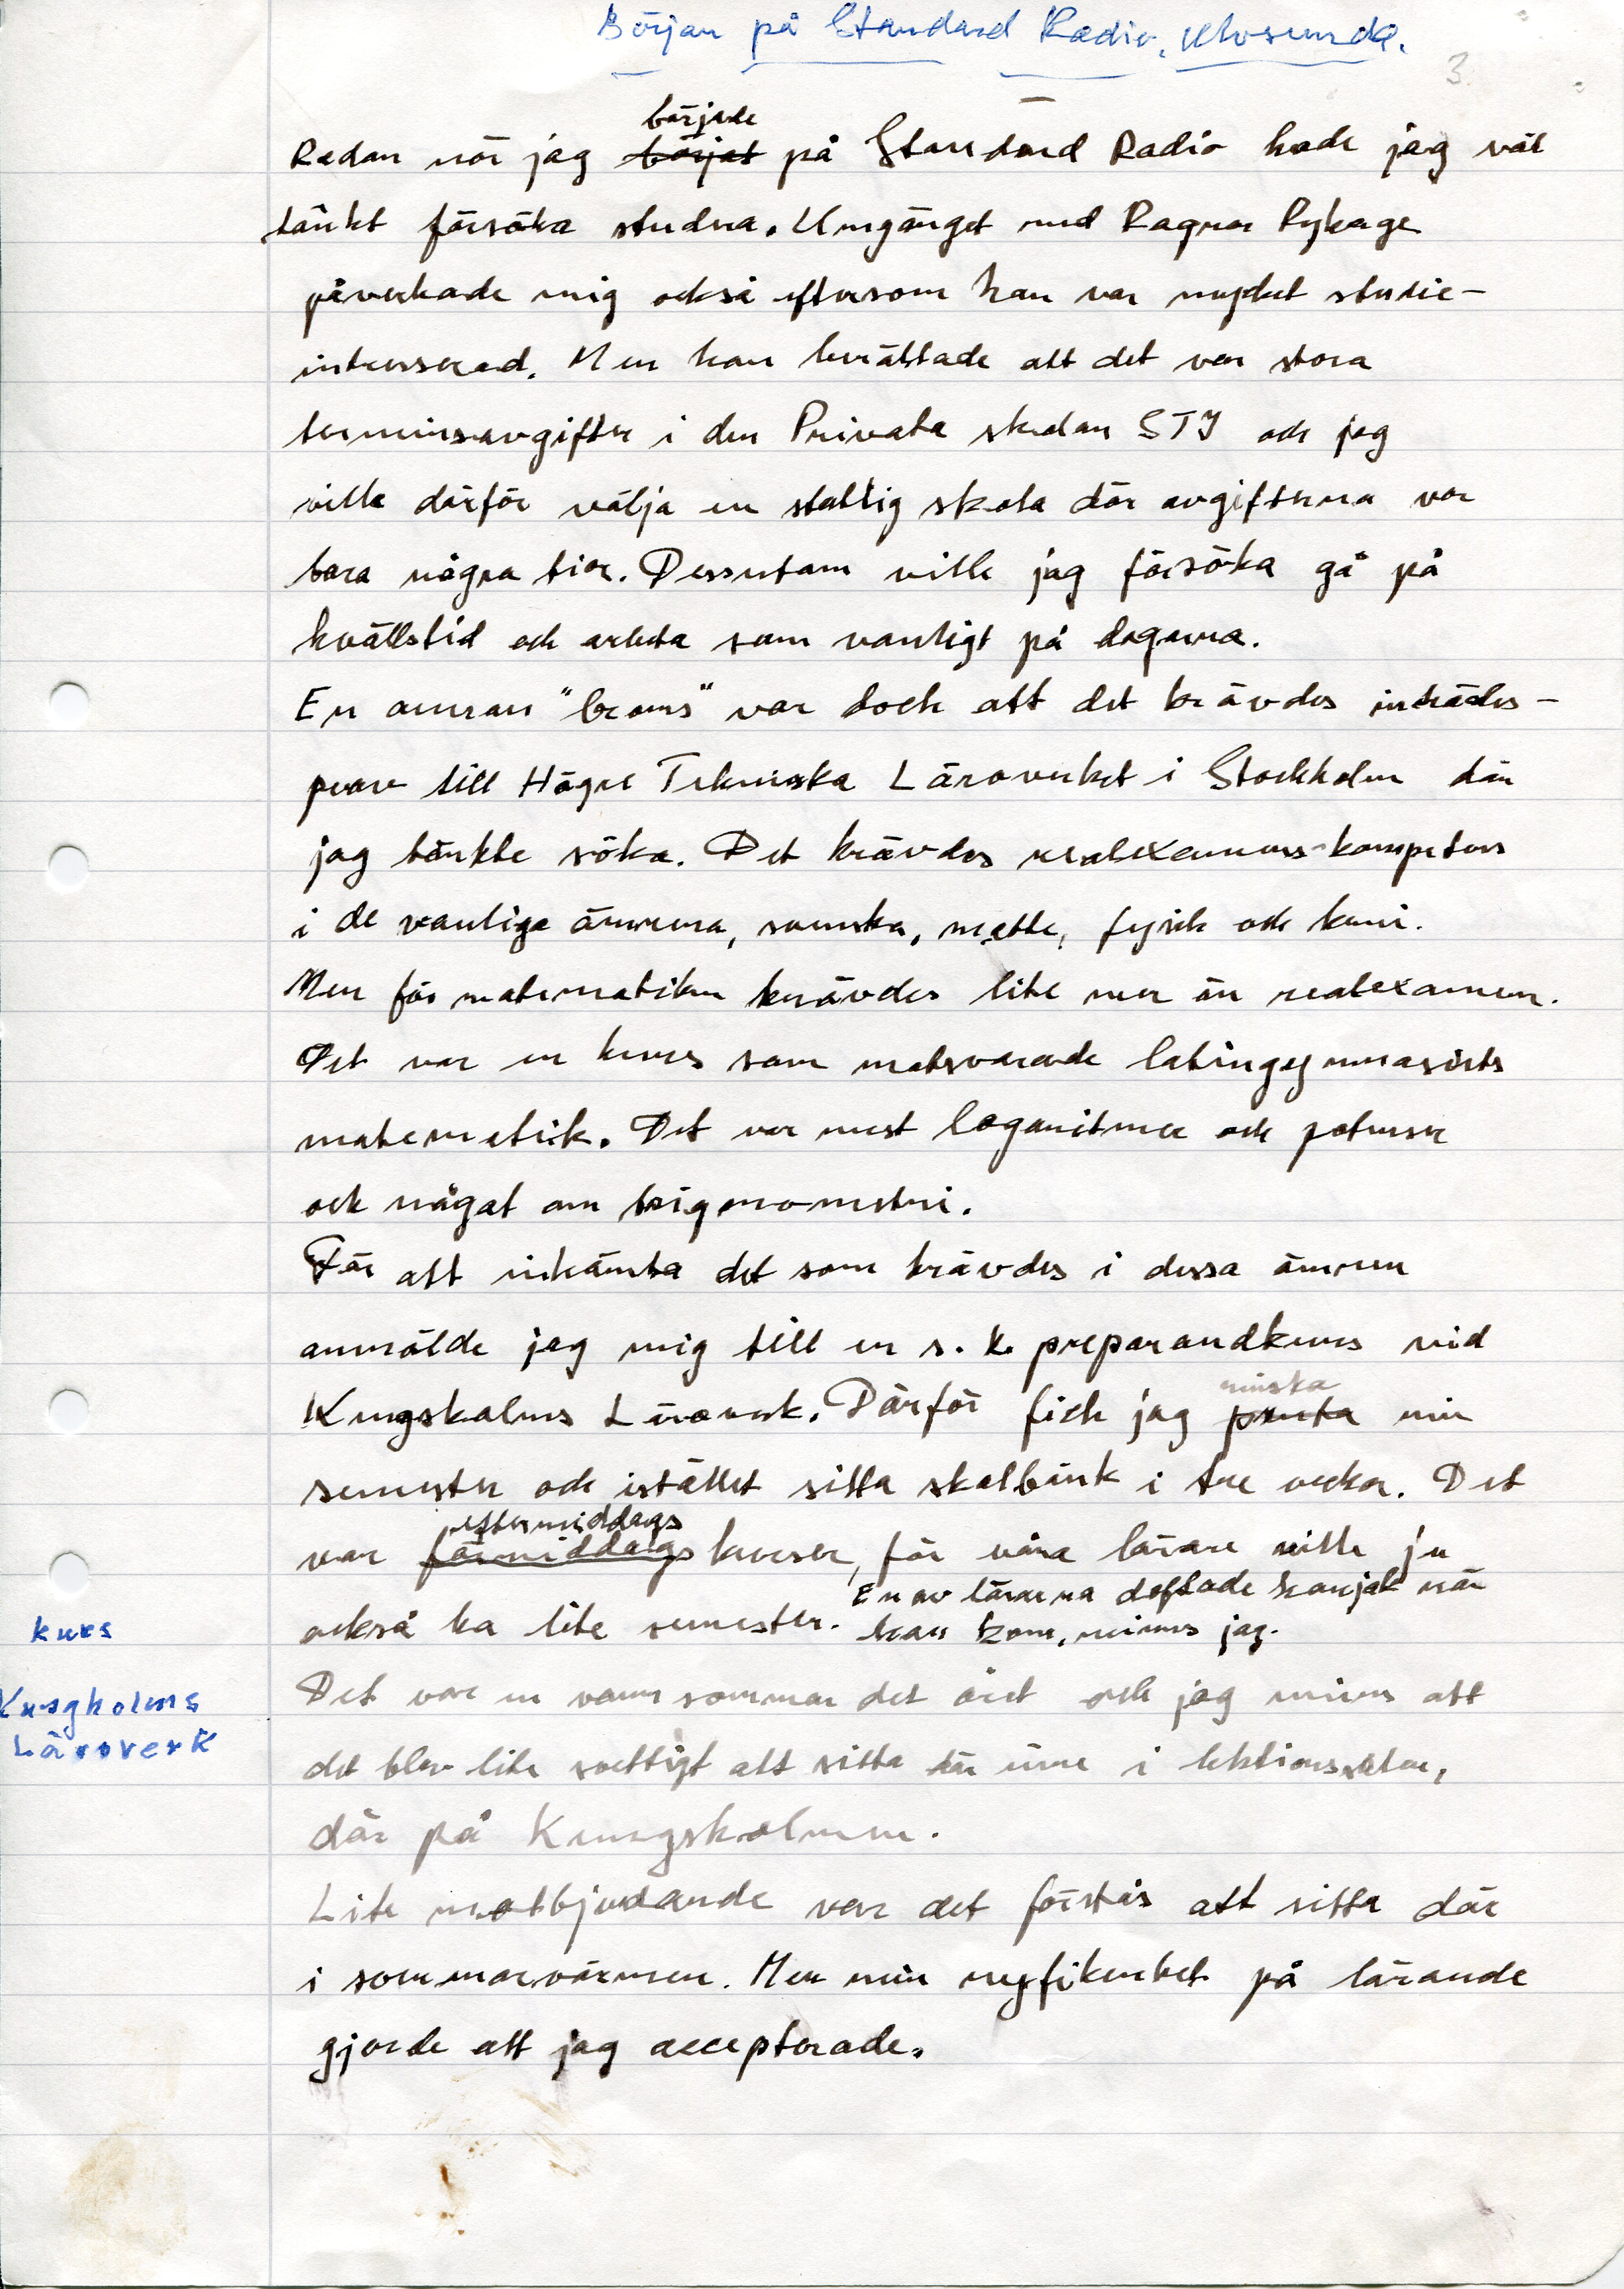 Början på Standard Radio, Ulvsunda.
3.
Redan när jag började på Standard Radio hade jag väl
tänkt försöka studera. Umgänget med Ragnar Rykage
påverkade mig också eftersom han var mycket studie-
intresserad. Men han berättade att det var stora
terminsavgifter i den Privata skolan STI och jag
ville därför välja en statlig skola där avgifterna var
bara några tior. Dessutom ville jag försöka gå på
kvällstid och arbeta som vanligt på dagarna.
En annan "broms" var dock att det krävdes inträdes-
prov till Högre Tekniska Läroverket i Stockholm där
jag tänkte söka. Det krävdes realexamens-kompetens
i de vanliga ämnena, svenska, matte, fysik och kemi.
Men för matematiken krävdes lite mer än realexamen.
Det var en kurs som motsvarande latingymnasiets
matematik. Det var mest logaritmer och potenser
och något om trigonometri.
För att inhämta det som krävdes i dessa ämnen
anmälde jag mig till en s.k. preparandkurs vid
Kungsholms Läroverk. Därför fick jag minska min
semester och istället sitta skolbänk i tre veckor. Det
var eftermiddagskurser, för våra lärare ville ju
också ha lite semester. En av lärarna doftade konjak när
han kom, minns jag.
kurs
Kungholms
Läroverk
Det var en varm sommar det året och jag minns att
det blev lite svettigt att sitta där inne i lektionssalar,
där på Kungsholmen.
Lite motbjudande var det förstås att sitta där
i sommarvärmen. Men min nyfikenhet på lärande
gjorde att jag accepterade.